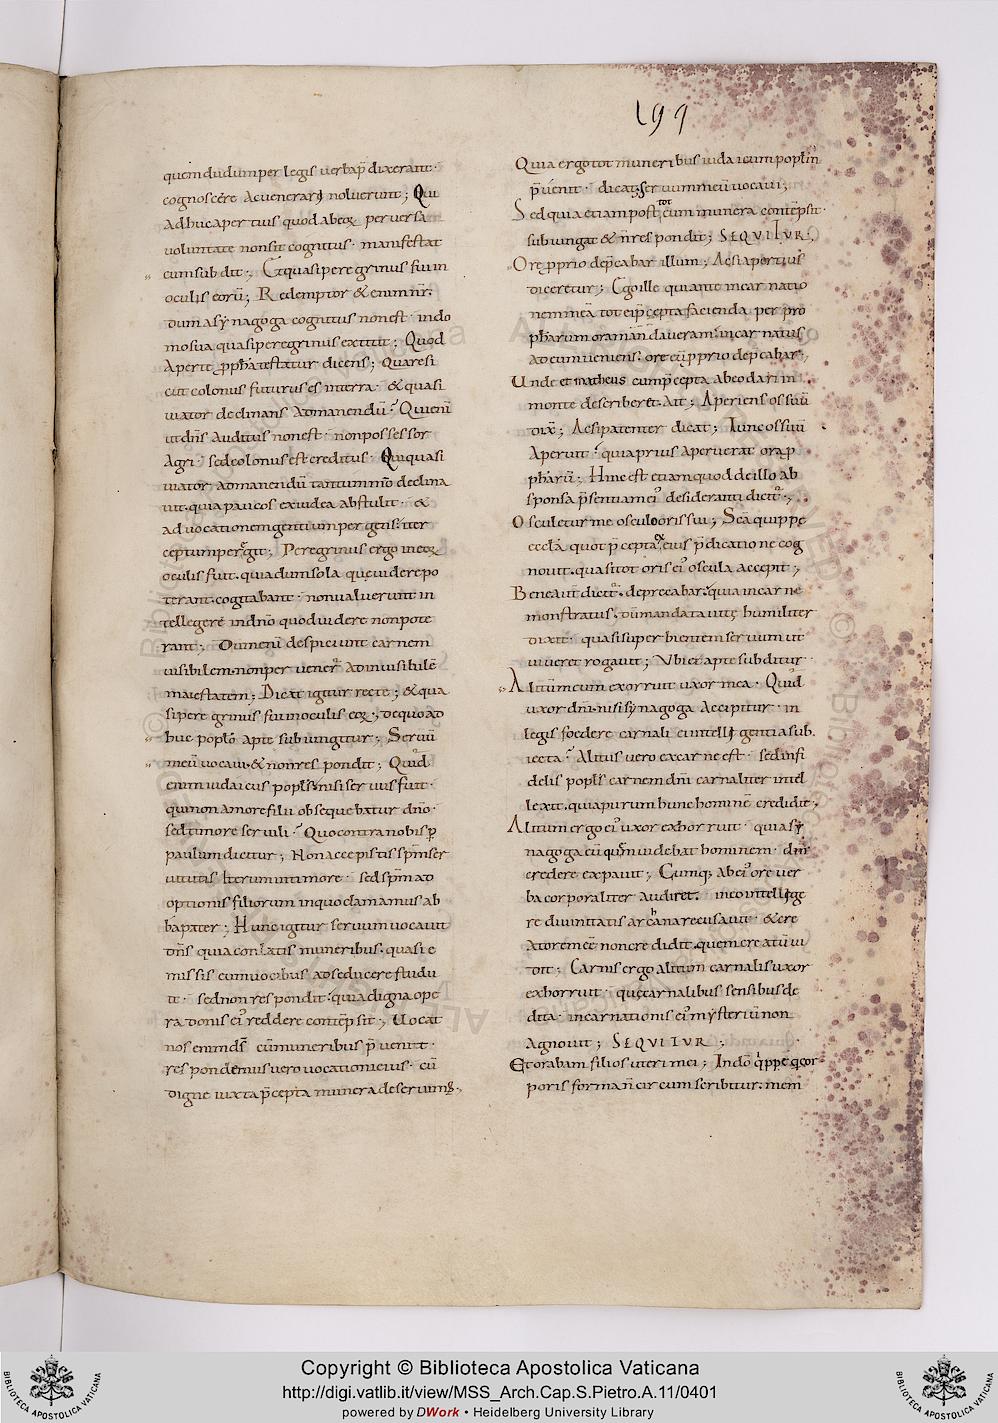 199
quem dudum per legis uerba p̄dixerant·
cognoscere ac uenerari noluerunt; Qui
adhuc apertius quod ab eoꝝ peruersa
uoluntate non sit cognitus· manifestat
cum subdit·, Et quasi peregrinus fui in
oculis eorū; Redemptor & enim nr̄·
dum a synagoga cognitus non est· in do
mo sua quasi peregrinus extitit; Quod
aperte ꝓpha testatur dicens; Quare si
cut colonus futurus es in terra· & quasi
uiator declinans ad manendū? Qui enī
ut dn̄s auditus non est· non possessor
agri· sed colonus est creditus· Qui quasi
uiator ad manendū tantummo declina
uit· quia paucos ex iudea abstulit· &
ad uocationem gentium pergens· iter
ceptum peregit; Peregrinus ergo in eoꝝ
oculis fuit· quia dum sola quę uidere po
terant· cogitabant· non ualuerunt in
tellegere in dn̄o quod uidere non pote
rant·, Dum enī despiciunt carnem
uisibilem· non peruener̄ ad inuisibilē
maiestatem; Dicat igitur recte; & qua
si peregrinus fui in oculis eoꝝ·, de quo ad
huc poplo apte subiungitur; Seruū
meū uocaui· & non respondit; Quid
enim iudaicus popls nisi seruus fuit·
qui non amore filii obsequebatur dn̄o·
sed timore seruili? Quo contra nobis ꝑ
paulum dicitur; Non accepistis sp̄m ser
uitutis iterum in timore· sed sp̄m ad
optionis filiorum in quo clamamus ab
ba pater; Hunc igitur seruum uocauit
dn̄s quia conlatis muneribus· quasi e
missis cum uocibus ad se ducere studu
it· sed non respondit· quia digna ope
ra donis eī reddere contēpsit·, Uocat
nos enim ds̄ cū muneribus p̄uenit·
respondemus uero uocationi eius· cū
digne iuxta p̄cepta munera deseruimꝰ·,
Quia ergo tot muneribus iudaicum poplm̄
p̄uenit· dicat; seruum meū uocaui;
Sed quia etiam post tot eum munera contēpsit·
subiungat & n̄ respondit; SEQUITUR,
Ore ꝓprio dep̄cabar illum; Ac si apertius
diceretur; Ego ille qui ante incarnatio
nem meā tot ei p̄cepta facienda per pro
ph̄arum ora mandaueram· incarnatus
ad eum ueniens· ore eū ꝓprio dep̄cabar;,
Unde et matheus cum p̄cepta ab eo dari in
monte describeret· ait; Aperiens os suū
dix̄; Ac si patenter dicat; Tunc os suū
aperuit· qui a prius aperuerat ora ꝓ
ph̄arū·, Hinc est etiam quod de illo ab
sponsa p̄sentiam eī desideranti dicit̄·,
Osculetur me osculo oris sui; Scā quippe
eccla quot p̄cepta ex eius p̄dicatione cog
nouit· quasi tot oris eī oscula accepit·,
Bene aut̄ dicit̄· deprecabar· quia in carne
monstratus· dū mandata uitę humiliter
dixit· quasi superbientem seruum ut
ueniret rogauit; Ubi et apte subditur·
Alitum eum exorruit uxor mea· Quid
uxor dn̄i· nisi synagoga accipitur· in
legis foedere carnali ei intelligentia sub
iecta? Alitus uero ex carne est· sed infi
delis popls carnem dn̄i carnaliter intel
lexit· quia purum hunc hominē credidit·,
Alitum ergo eī uxor exhorruit· quia sy
nagoga eū quem uidebat hominem· dm̄
credere expauit·, Cumq; ab eī ore uer
ba corporaliter audiret· in eo intellige
re diuinitatis archana recusauit· & cre
atorem eē non credidit· quem creatū ui
dit; Carnis ergo alitum carnalis uxor
exhorruit· quę carnalibus sensibus de
dita· incarnationis eī mysterium non
agnouit; SEQUITUR;
Et orabam filios uteri mei; In dō q̄ippe q̄ cor
poris forma n̄ circumscribitur· mem
Copyright © Biblioteca Apostolica Vaticana
http://digi.vatlib.it/view/MSS_Arch.Cap.S.Pietro.A.11/0401
powered by DWork • Heidelberg University Library
BIBLIOTECA APOSTOLICA VATICANA
BIBLIOTECA APOSTOLICA VATICANA